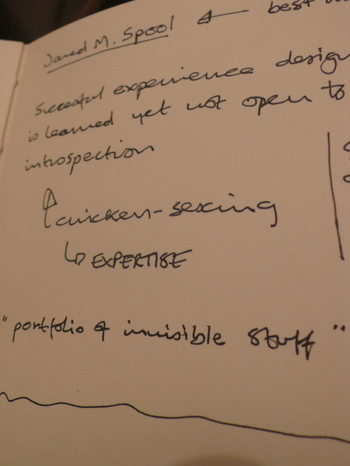 Jared M. Spool ← best
Successful experience design
is learned yet not open to
introspection
↑ chicken-sexing
↳ EXPERTISE
"portfolio of invisible stuff"